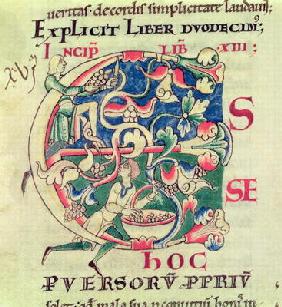 ueritas. de cordis simplicitate laudauit;
EXPLICIT LIBER DVODECIM⁹;
INCIP̄ LIB̄ XIII:
E S
SE
hOC
PVERSORŪ·PPRIŪ